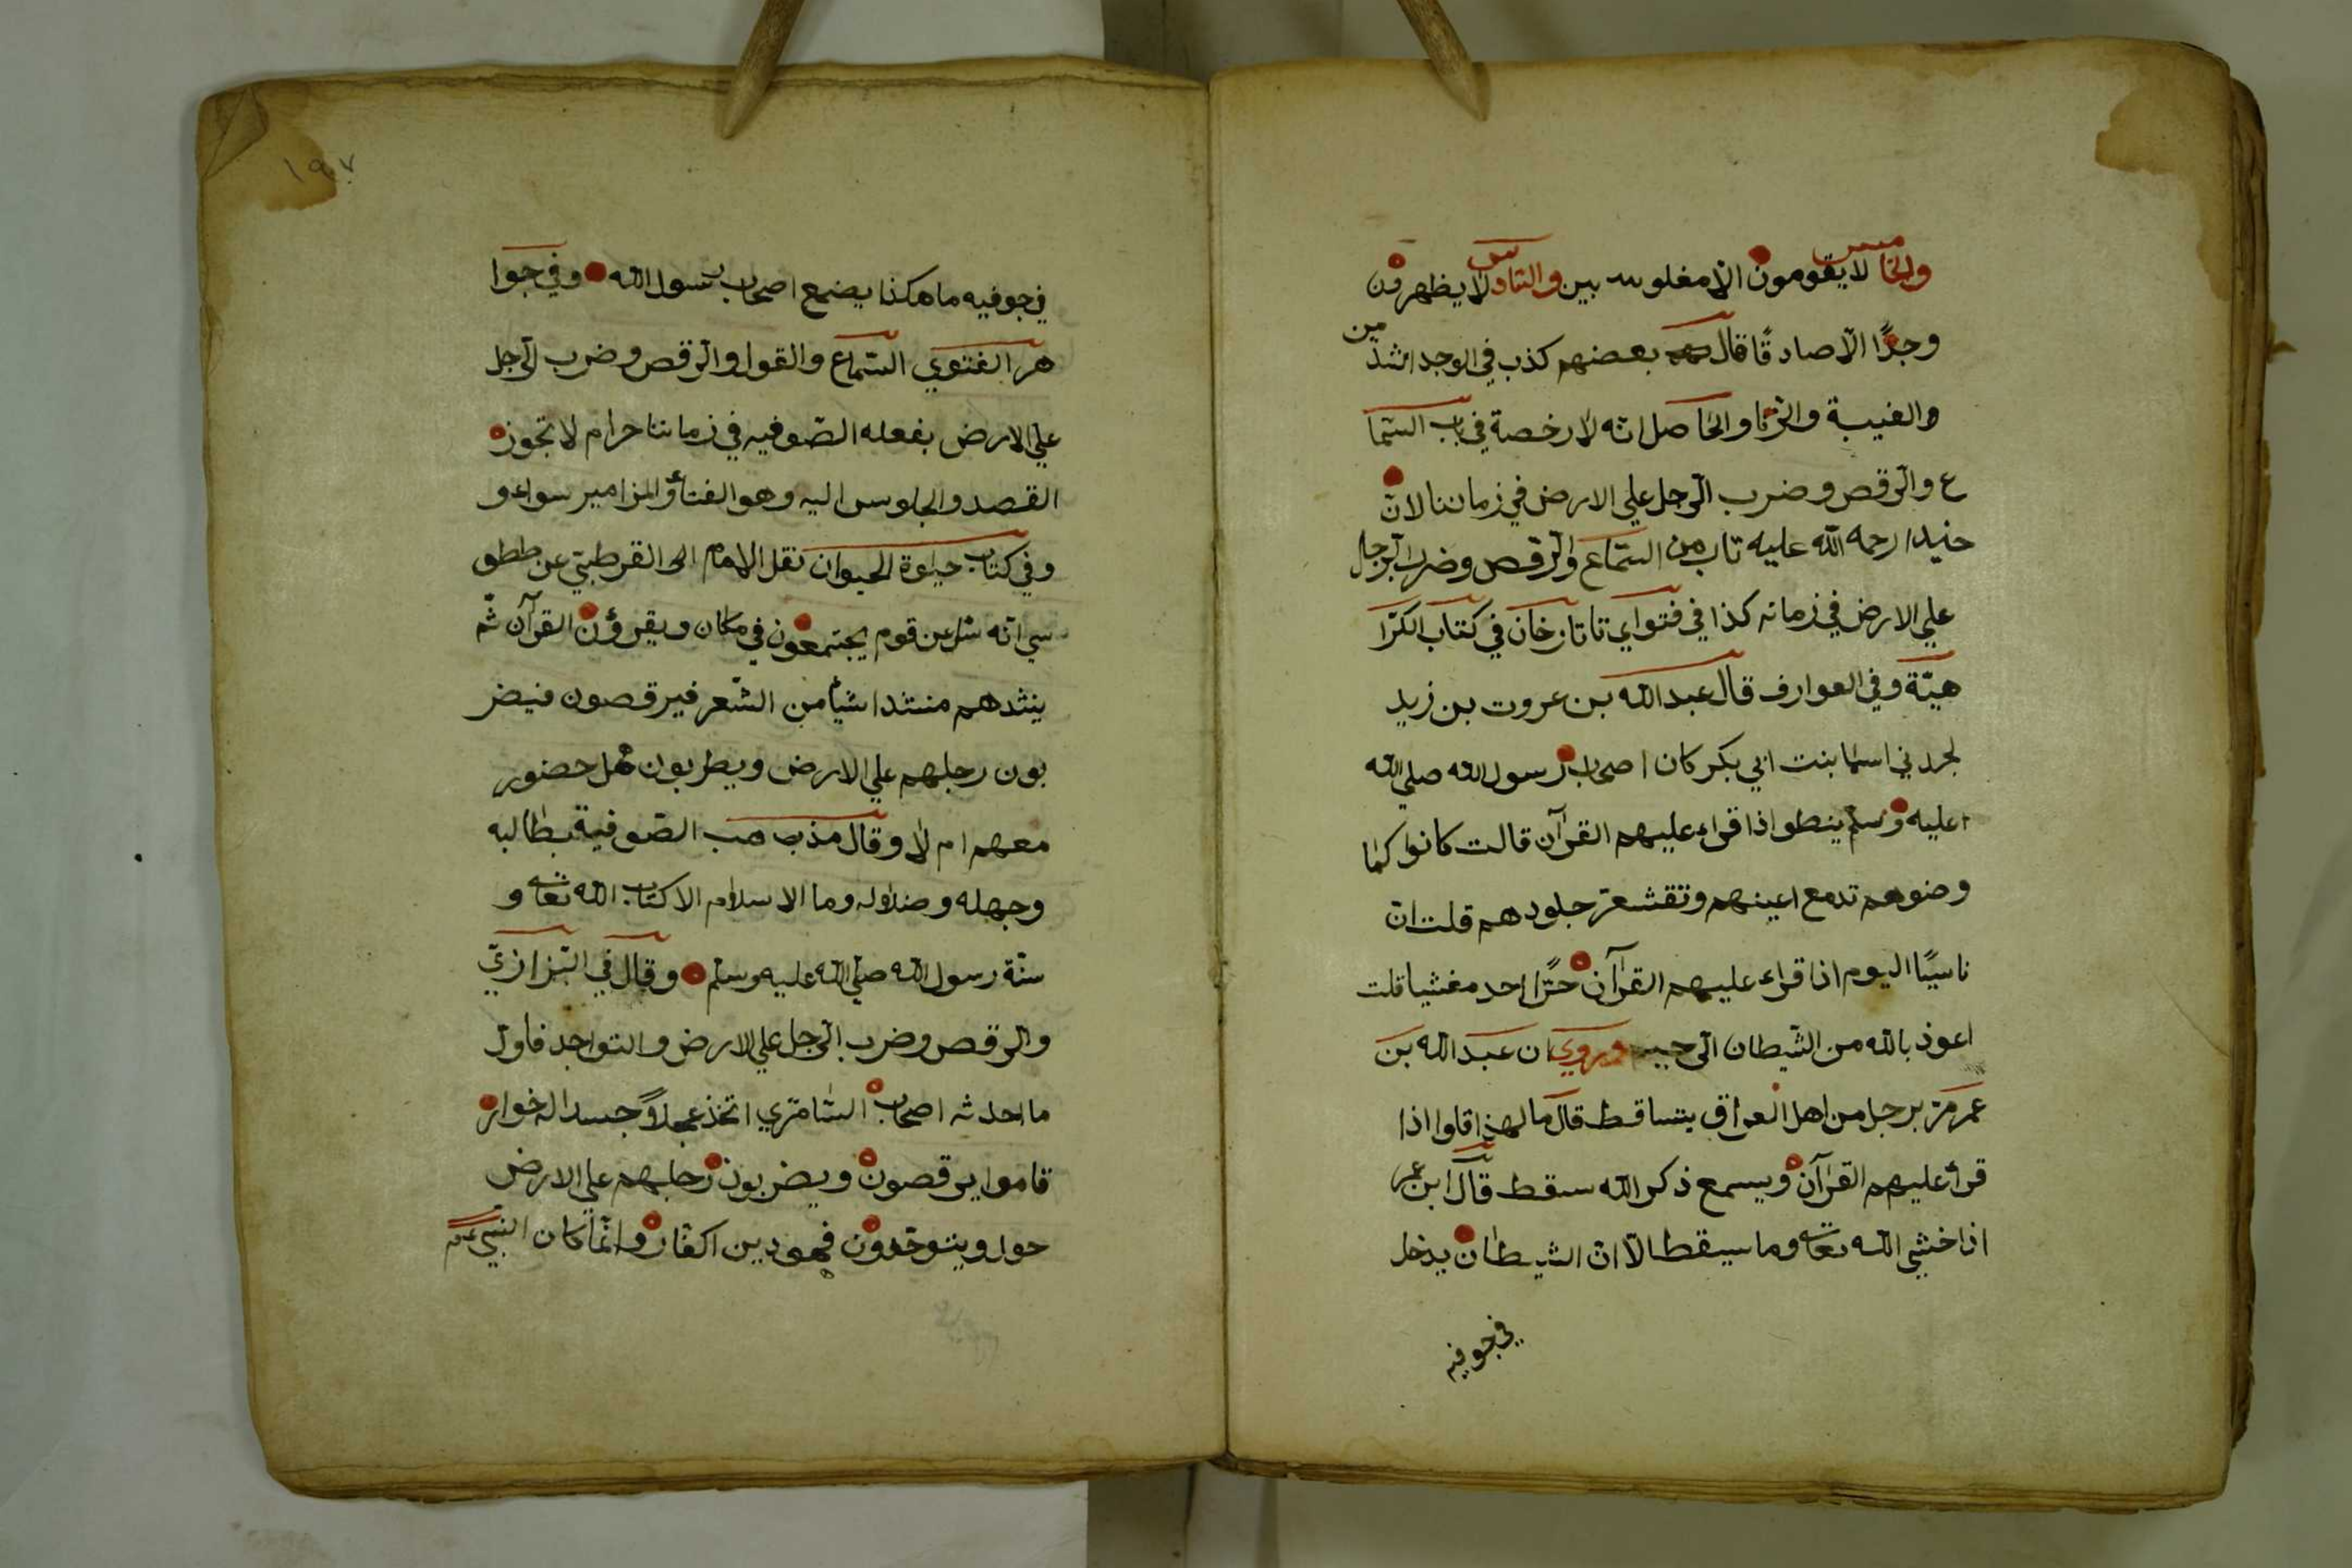 والخامس لا يقومون الا مغلوبين والسادس لا يظهرون
وجدًا الّا صادقًا قال بعضهم كذب في الوجد اشد من
والغيبة والزنا والحاصل انه لا رخصة في باب السّما
ع والرّقص وضرب الرّجل علي الارض في زماننا لانّ
جنيدا رحمه اللّه عليه تاب من السّماع والرّقص وضرب الرجل
علي الارض في زمانه كذا في فتواي تاتارخان في كتاب الكرا
هيّة وفي العوارف قال عبد اللّه بن عروت بن زيد
لجدتي اسما بنت ابي بكر كان اصحاب رسول اللّه صلي اللّه
عليه وسلّم ينطوا اذا قراء عليهم القرآن قالت كانوا كما
وضوهم تدمع اعينهم وتقشعرّ جلودهم قلت انّ
ناسيًا اليوم اذا قراء عليهم القرآن خرّا احد مغشيا قلت
اعوذ باللّه من الشّيطان الرّجيم وروي ان عبد اللّه بن
عمر مرّ برجل من اهل العراق يتساقط قال ما لهذا قالوا اذا
قرأ عليهم القرآن ويسمع ذكر اللّه سقط قال ابن عمر
اذا خشي اللّه تعالى وما سيقط الّا انّ الشيطان يدخل
في جوفيه
١٩٧
في جوفيه ما هكذا يضع اصحاب رسول اللّه وفي جوا
هر الفتوي السّماع والقول والرّقص وضرب الرّجل
علي الارض يفعله الصّوفيه في زماننا حرام لا تجوز
القصد والجلوس اليه وهو الغناء والمزامير سواء و
وفي كتاب حيوة الحيوان نقل الامام القرطبتي عن طط
سي انّه سئل عن قوم يجتمعون في مكان ويقرؤن القرآن ثمّ
ينشدهم منشدا شيأ من الشّعر فيرقصون فيضر
بون رجلهم علي الارض ويطربون هل حضور
معهم ام لا وقال مذهب الصّوفية بطالبه
وجهله وضلاله وما الاسلام الا كتاب اللّه تعالى و
سنّة رسول اللّه صلّي اللّه عليه وسلّم وقال في البزازيّ
والرقص وضرب الرّجل علي الارض والتواجد فاوّل
ما احدثه اصحاب السّامري اتخذ عجلًا جسدا له خوار
قاموا يرقصون ويضربون رجلهم علي الارض
حول ويتوجّدون فهو دين الكفّار وانّما كان النبي عم